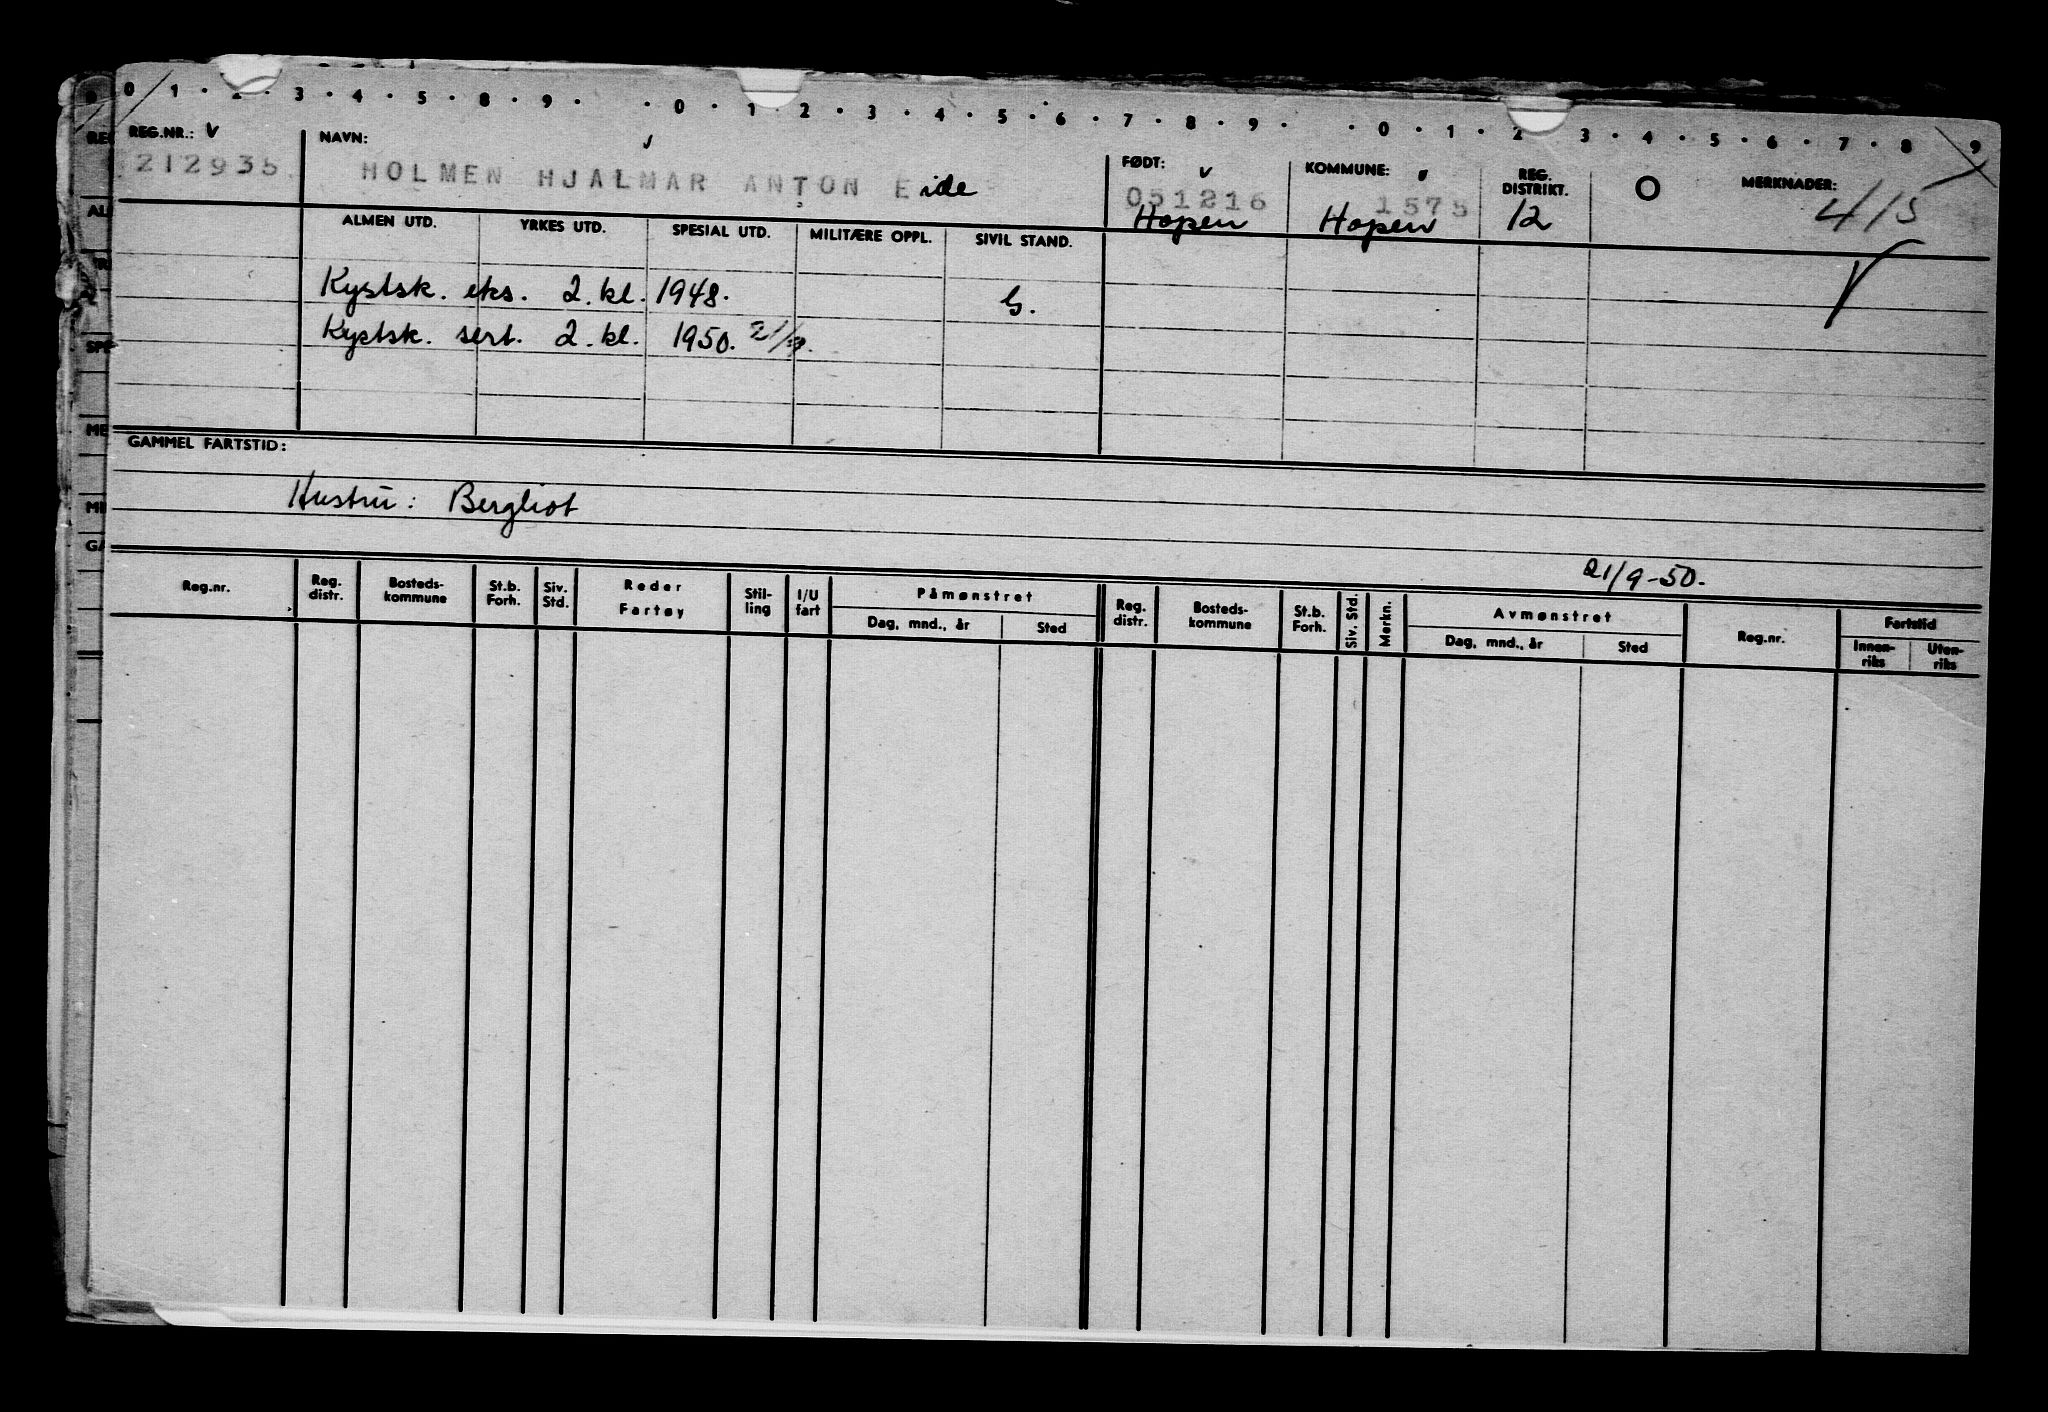 0 1 · 2 · 3 · 4 · 5 · 8 · 9 · · 0 · 1 · 2 · 3 · 4 · 5 · 6 · 7 · 8 · 9 · · 0 · 1 · 2 · 3 · 4 · 5 · 6 · 7 · 8 · 9
REG.NR.: V NAVN: FØDT: KOMMUNE: REG. DISTRIKT. O MERKNADER:
212935 HOLMEN HJALMAR ANTON Eide 051216 1575 12 415
Hopen Hopen
ALMEN UTD. YRKES UTD. SPESIAL UTD. MILITÆRE OPPL. SIVIL STAND.
Kystsk. eks. 2. kl. 1948. G.
Kystsk. sert. 2. kl. 1950.
GAMMEL FARTSTID:
Hustru: Bergliot
21/9-50.
Reg.nr. Reg. distr. Bosteds- kommune St.b. Forh. Siv. Std. Reder Fartøy Stil- ling I/U fart Påmønstret Reg. distr. Bosteds- kommune St.b. Forh. Siv. Std. Merkn. Avmønstret Reg.nr. Fartstid
Dag, mnd., år Sted Dag, mnd., år Sted Innen- riks Uten- riks